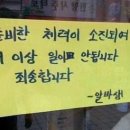 준비한 체력이 소진되어
더 이상 일이 안됩니다
죄송합니다
-알바생!